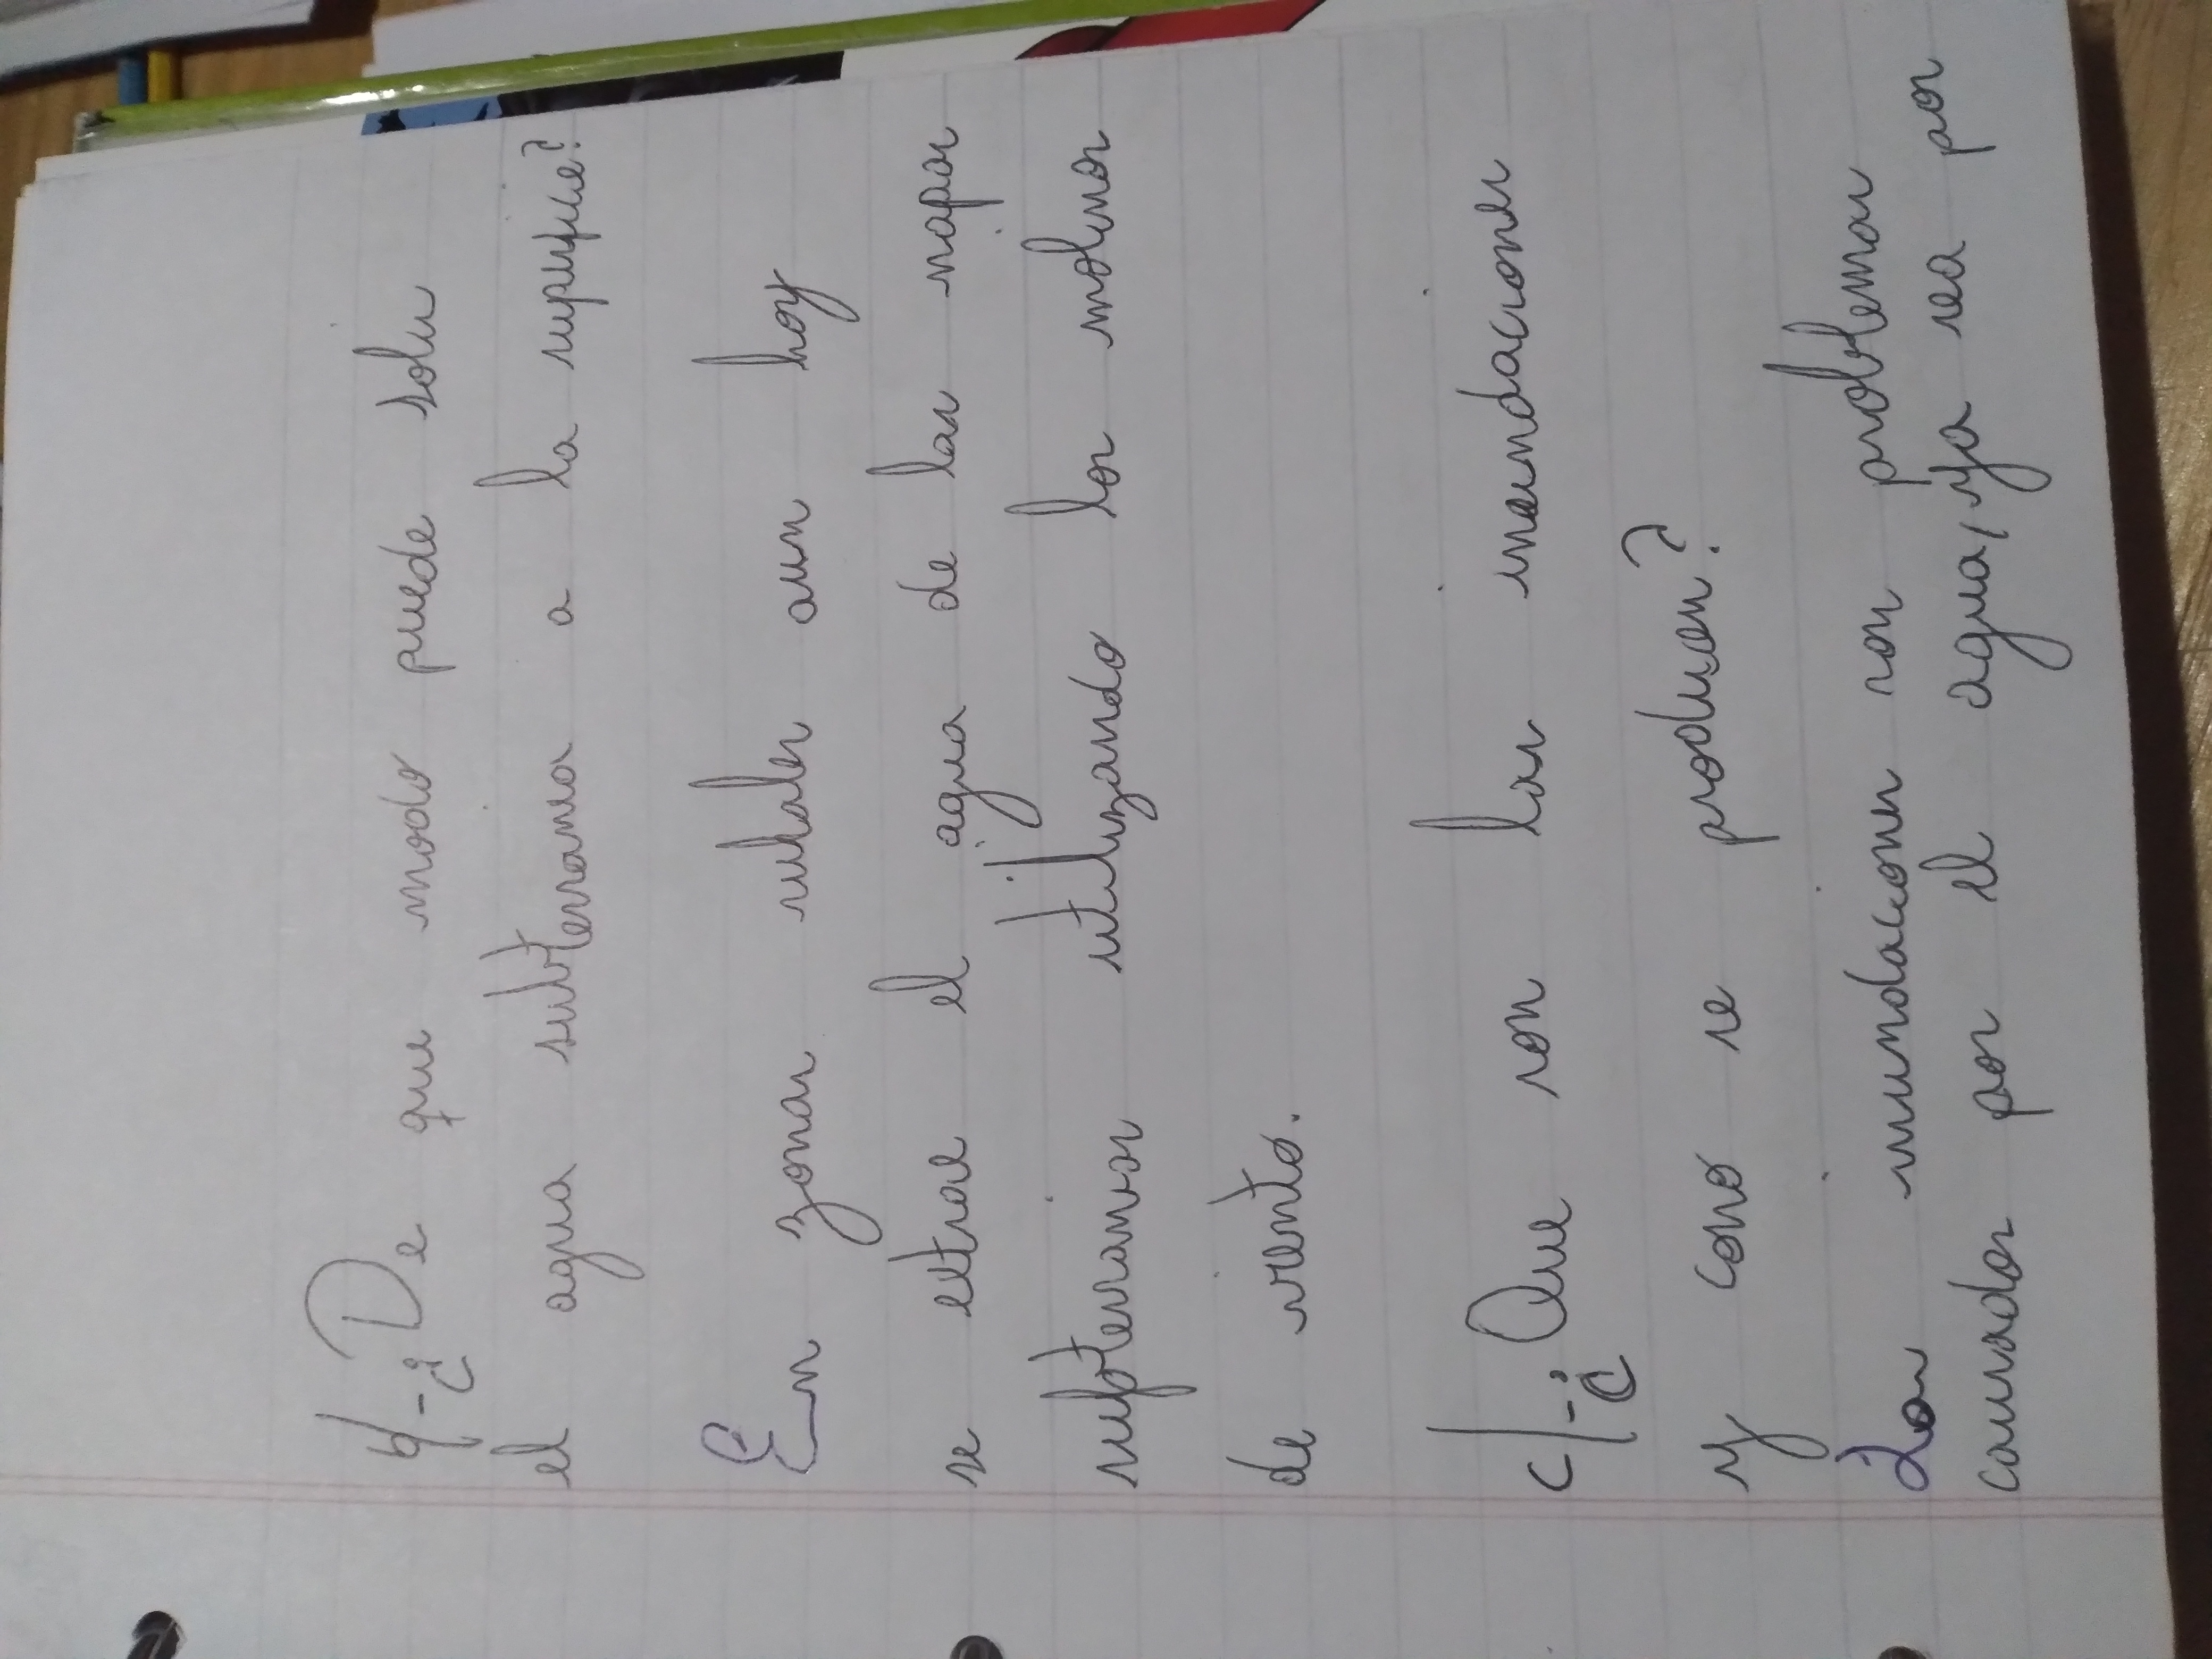 b/-¿De que modo puede solir
el agua subterranea a la superficie?
En zonas rurales aun hoy
se extrae el agua de las napas
subterraneas utilizando los molinos
de viento.
c/-¿Que son las inundaciones
y como se producen?
Las inundaciones son problemas
causados por el agua, ya sea por